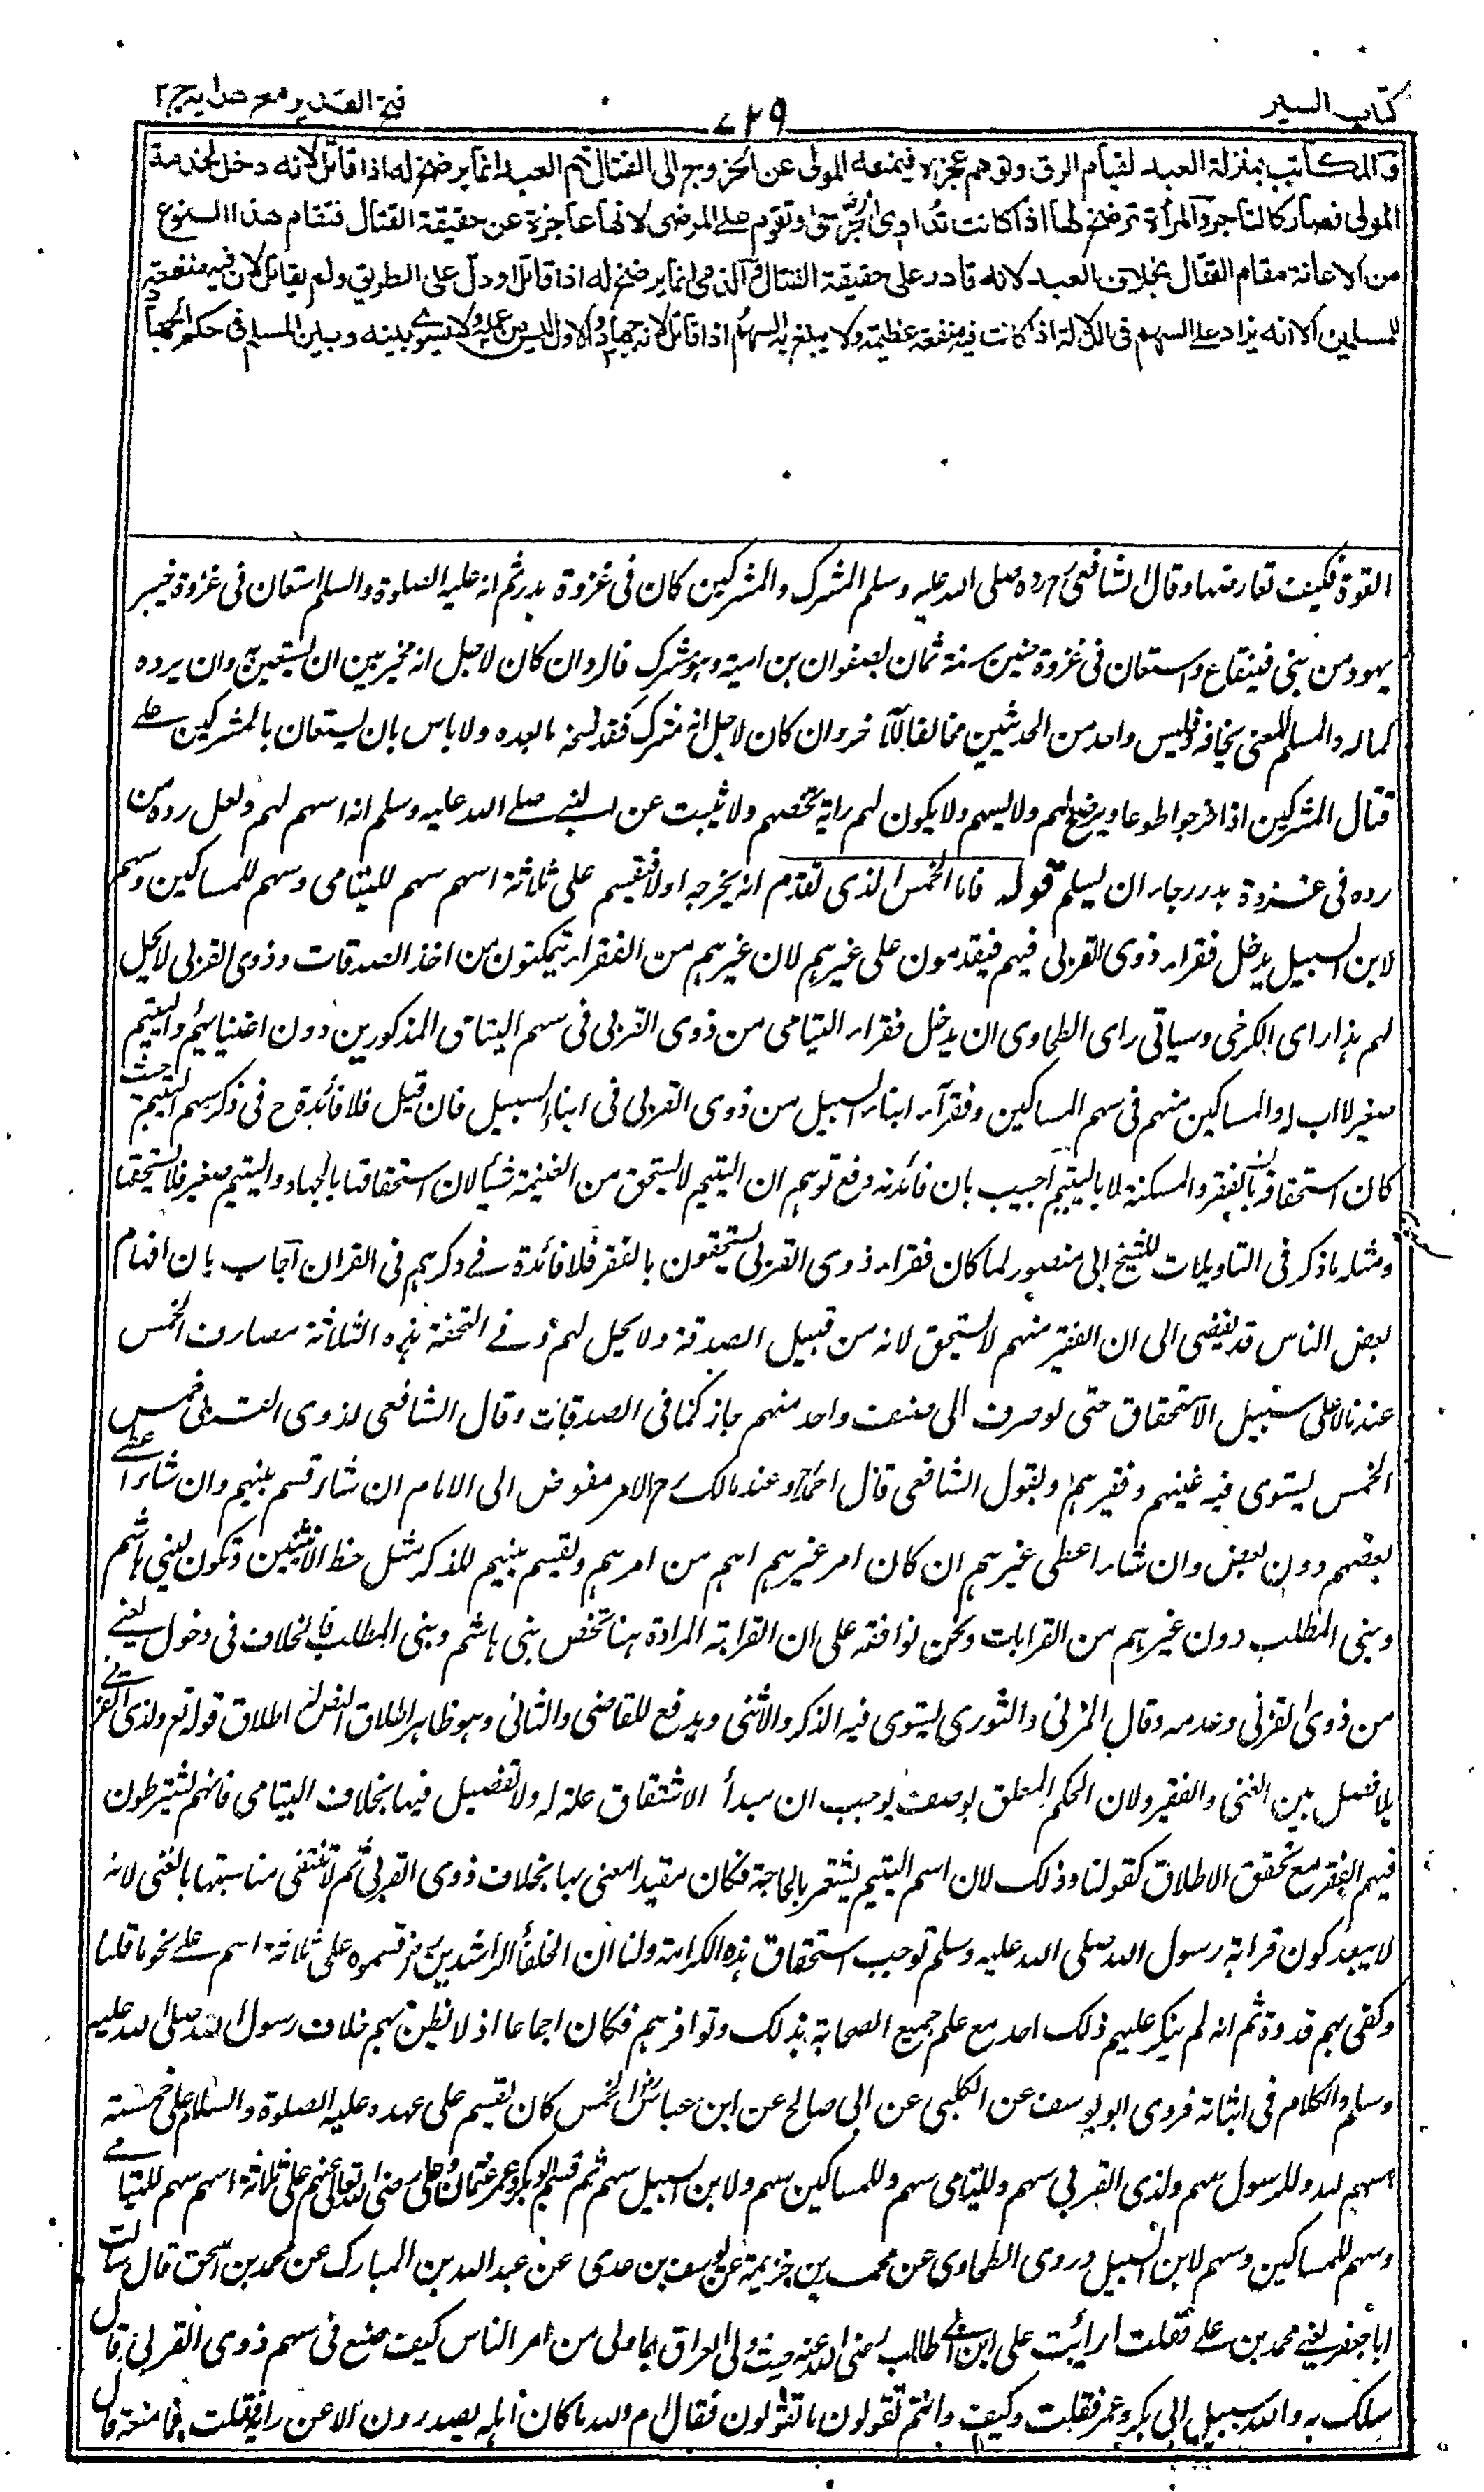 كتاب السير
٧٢٩
فتح القدير مع هدايه ج ٢
والمكاتب بمنزلة العبد لقيام الرق وتوهم عجزه فيمنعه المولى عن الخروج الى القتال ثم العبد انما يرضخ له اذا قاتل لانه دخل لخدمة
المولى فصار كالتاجر والمرأة ترضخ لها اذا كانت تداوى الجرحى وتقوم على المرضى لانها عاجزة عن حقيقة القتال فتقام هذا النوع
من الاعانة مقام القتال بخلاف العبد لانه قادر على حقيقة القتال والذمى انما يرضخ له اذا قاتل او دل على الطريق ولم يقاتل لان فيه منفعة
للمسلمين الا انه يزاد على السهم فى الدلالة اذا كانت فيه منفعة عظيمة ولا يبلغ به السهم اذا قاتل لانه جهاد والاول ليس من عمله ولا يسوى بينه وبين المسلم فى حكم الجهاد
القوة فكيف تعارضها وقال الشافعى رح رده صلى الله عليه وسلم المشرك والمشركين كان فى غزوة بدر ثم انه عليه الصلوة والسلم استعان فى غزوة خيبر
يهود من بنى قينقاع واستعان فى غزوة حنين سنة ثمان بصفوان بن امية وهو مشرك فالرد ان كان لاجل انه مخير بين ان يستعين وان يرده
كما له رد المسلم لمعنى يخافه فليس واحد من الحديثين مخالفا للآخر وان كان لاجل انه مشرك فقد نسخه ما بعده ولا باس بان يستعان بالمشركين على
قتال المشركين اذا خرجوا طوعا ويرضخ لهم ولا يسهم ولا يكون لهم راية تخصهم ولا يثبت عن النبى صلى الله عليه وسلم انه اسهم لهم ولعل رده من
رده فى غزوة بدر رجاء ان يسلم قوله فاما الخمس الذى تقدم انه يخرجه اولا فيقسم على ثلاثة اسهم سهم لليتامى وسهم للمساكين وسهم
لابن السبيل يدخل فقراء ذوى القربى فيهم فيقدمون على غيرهم لان غيرهم من الفقراء يتمكنون من اخذ الصدقات وذوى القربى لا يحل
لهم هذا رأى الكرخى وسيأتى رأى الطحاوى ان يدخل فقراء اليتامى من ذوى القربى فى سهم اليتامى المذكورين دون اغنيائهم واليتيم
صغير لا اب له والمساكين منهم فى سهم المساكين وفقراء ابناء السبيل من ذوى القربى فى ابناء السبيل فان قيل فلا فائدة ح فى ذكر سهم اليتيم حيث
كان استحقاقه بالفقر والمسكنة لا باليتيم اجيب بان فائدته دفع توهم ان اليتيم لا يستحق من الغنيمة شيأ لان استحقاقها بالجهاد واليتيم صغير فلا يستحقها
ومثله ما ذكر فى التاويلات للشيخ ابى منصور لما كان فقراء ذوى القربى يستحقون بالفقر فلا فائدة فى ذكرهم فى القران اجاب بان افهام
بعض الناس قد يفضى الى ان الفقير منهم لا يستحق لانه من قبيل الصدقة ولا يحل لهم وفى التحفة هذه الثلاثة مصارف الخمس
عندنا لا على سبيل الاستحقاق حتى لو صرف الى صنف واحد منهم جاز كما فى الصدقات وقال الشافعى لذوى القربى خمس
الخمس يستوى فيه غنيهم وفقيرهم وبقول الشافعى قال احمد وعند مالك رح الامر مفوض الى الامام ان شاء قسم بينهم وان شاء اعطى
بعضهم دون بعض وان شاء اعطى غيرهم ان كان امر غيرهم اهم من امرهم ويقسم بينهم للذكر مثل حظ الانثيين ويكون لبنى هاشم
وبنى المطلب دون غيرهم من القرابات ونحن نوافقه على ان القرابة المرادة هنا تخص بنى هاشم وبنى المطلب فالخلاف فى دخول الغنى
من ذوى القربى وعدمه وقال المزنى والثورى يستوى فيه الذكر والانثى ويدفع للقاصى والدانى وهو ظاهر اطلاق النص له اطلاق قوله تع ولذى القربى
بلا فصل بين الغنى والفقير ولان الحكم المعلق بوصف يوجب ان مبدأ الاشتقاق علة له ولا تفصيل فيها بخلاف اليتامى فانهم يشترطون
فيهم الفقر مع تحقق الاطلاق كقولنا وذلك لان اسم اليتيم يشعر بالحاجة فكان مقيدا معنى بها بخلاف ذوى القربى ثم لا تنتفى مناسبتها بالغنى لانه
لا يبعد كون قرابة رسول الله صلى الله عليه وسلم توجب استحقاق هذه الكرامة ولنا ان الخلفأ الراشدين رض قسموه على ثلاثة اسهم على نحو ما قلنا
وكفى بهم قدوة ثم انه لم ينكر عليهم ذلك احد مع علم جميع الصحابة بذلك وتوافرهم فكان اجماعا اذ لا يظن بهم خلاف رسول الله صلى الله عليه
وسلم والكلام فى اثباته فروى ابو يوسف عن الكلبى عن ابى صالح عن ابن عباس رض ان الخمس كان يقسم على عهده عليه الصلوة والسلام على خمسة
اسهم لله وللرسول سهم ولذى القربى سهم ولليتامى سهم وللمساكين سهم ولابن السبيل سهم ثم قسم ابو بكر وعمر وعثمان وعلى رضى الله تعالى عنهم على ثلاثة اسهم سهم لليتامى
وسهم للمساكين وسهم لابن السبيل وروى الطحاوى عن محمد بن خزيمة عن يوسف بن عدى عن عبد الله بن المبارك عن محمد بن اسحق قال سالت
ابا جعفر يعنى محمد بن على فقلت ارايت على ابن ابى طالب رضى الله عنه حيث ولى العراق وما ولى من امر الناس كيف صنع فى سهم ذوى القربى قال
سلك به والله سبيل ابى بكر وعمر فقلت وكيف وانتم تقولون ما تقولون فقال ام والله ما كان اهله يصدرون الا عن رايه قلت فما منعه قال